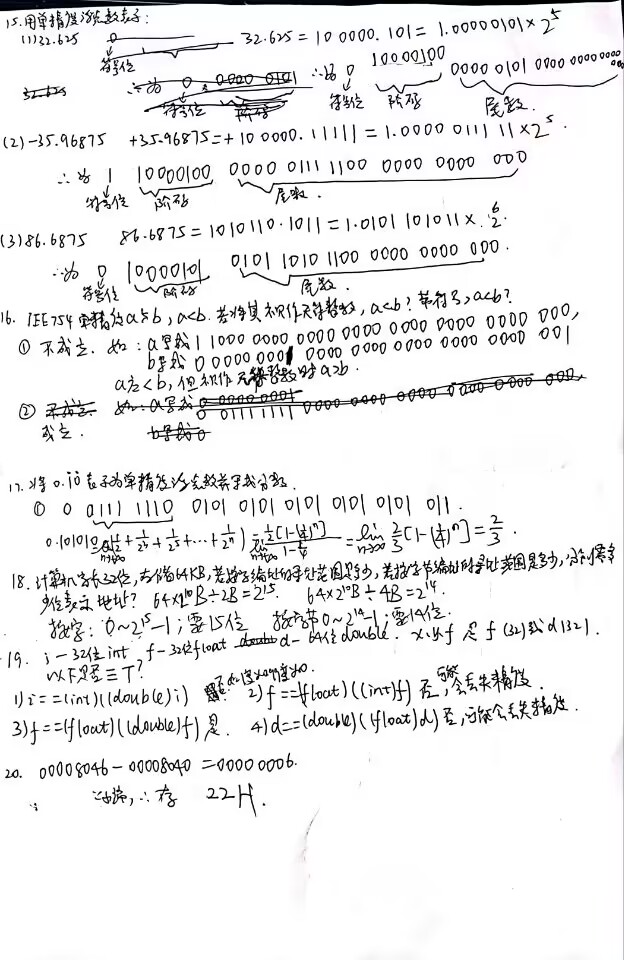 15.用单精度浮点数表示:
(1)32.625 0 32.625=100000.101=1.00000101×2^5
符号位 ∴为 0 10000100 0000 0101 0000 0000 0000 000
符号位 阶码 尾数.
(2)-35.96875 +35.96875=+100000.11111=1.0000 0111 11×2^5.
∴为 1 10000100 0000 0111 1100 0000 0000 000
符号位 阶码 尾数.
(3)86.6875 86.6875=1010110.1011=1.0101 101011×2^6.
∴为 0 10000101 0101 1010 1100 0000 0000 000.
符号位 阶码 尾数.
16. IEEE754 单精度a与b, a<b. 若将其 作无符号整数, a<b? 带符号, a<b?
① 不成立. 如: a 1 1000 0000 0000 0000 0000 0000 0000 000,
b 0 0000 0001 0000 0000 0000 0000 0000 001
a<b, 但 作无符号整数时 a>b.
②
成立.
17. 将 表示为单精度浮点数
① 0 0111 1110 0101 0101 0101 0101 0101 011.
0.101010= (1/2+1/2^3+1/2^5+…+1/2^n)= 1/2[1-(1/4)^n]/(1-1/4) =lim n→∞ 2/3[1-(1/4)^n]=2/3.
18. 计算机字长32位, 存储64KB, 若按字编址的寻址范围是多少, 若按字节编址的寻址范围是多少, 分别需多
少位表示地址? 64×2^10B÷2B=2^15. 64×2^10B÷4B=2^14.
按字: 0~2^15-1; 要15位 按字节0~2^14-1; 要14位.
19. i-32位int f-32位float d-64位double.
以下是否≡T?
1) i==(int)((double)i) 2) f==(float)((int)f) 否, 会丢失精度.
3) f==(float)((double)f) 是. 4) d==(double)((float)d) 否, 可能会丢失精度.
20. 00008046-00008040=00000006.
∵ ∴存 22H.